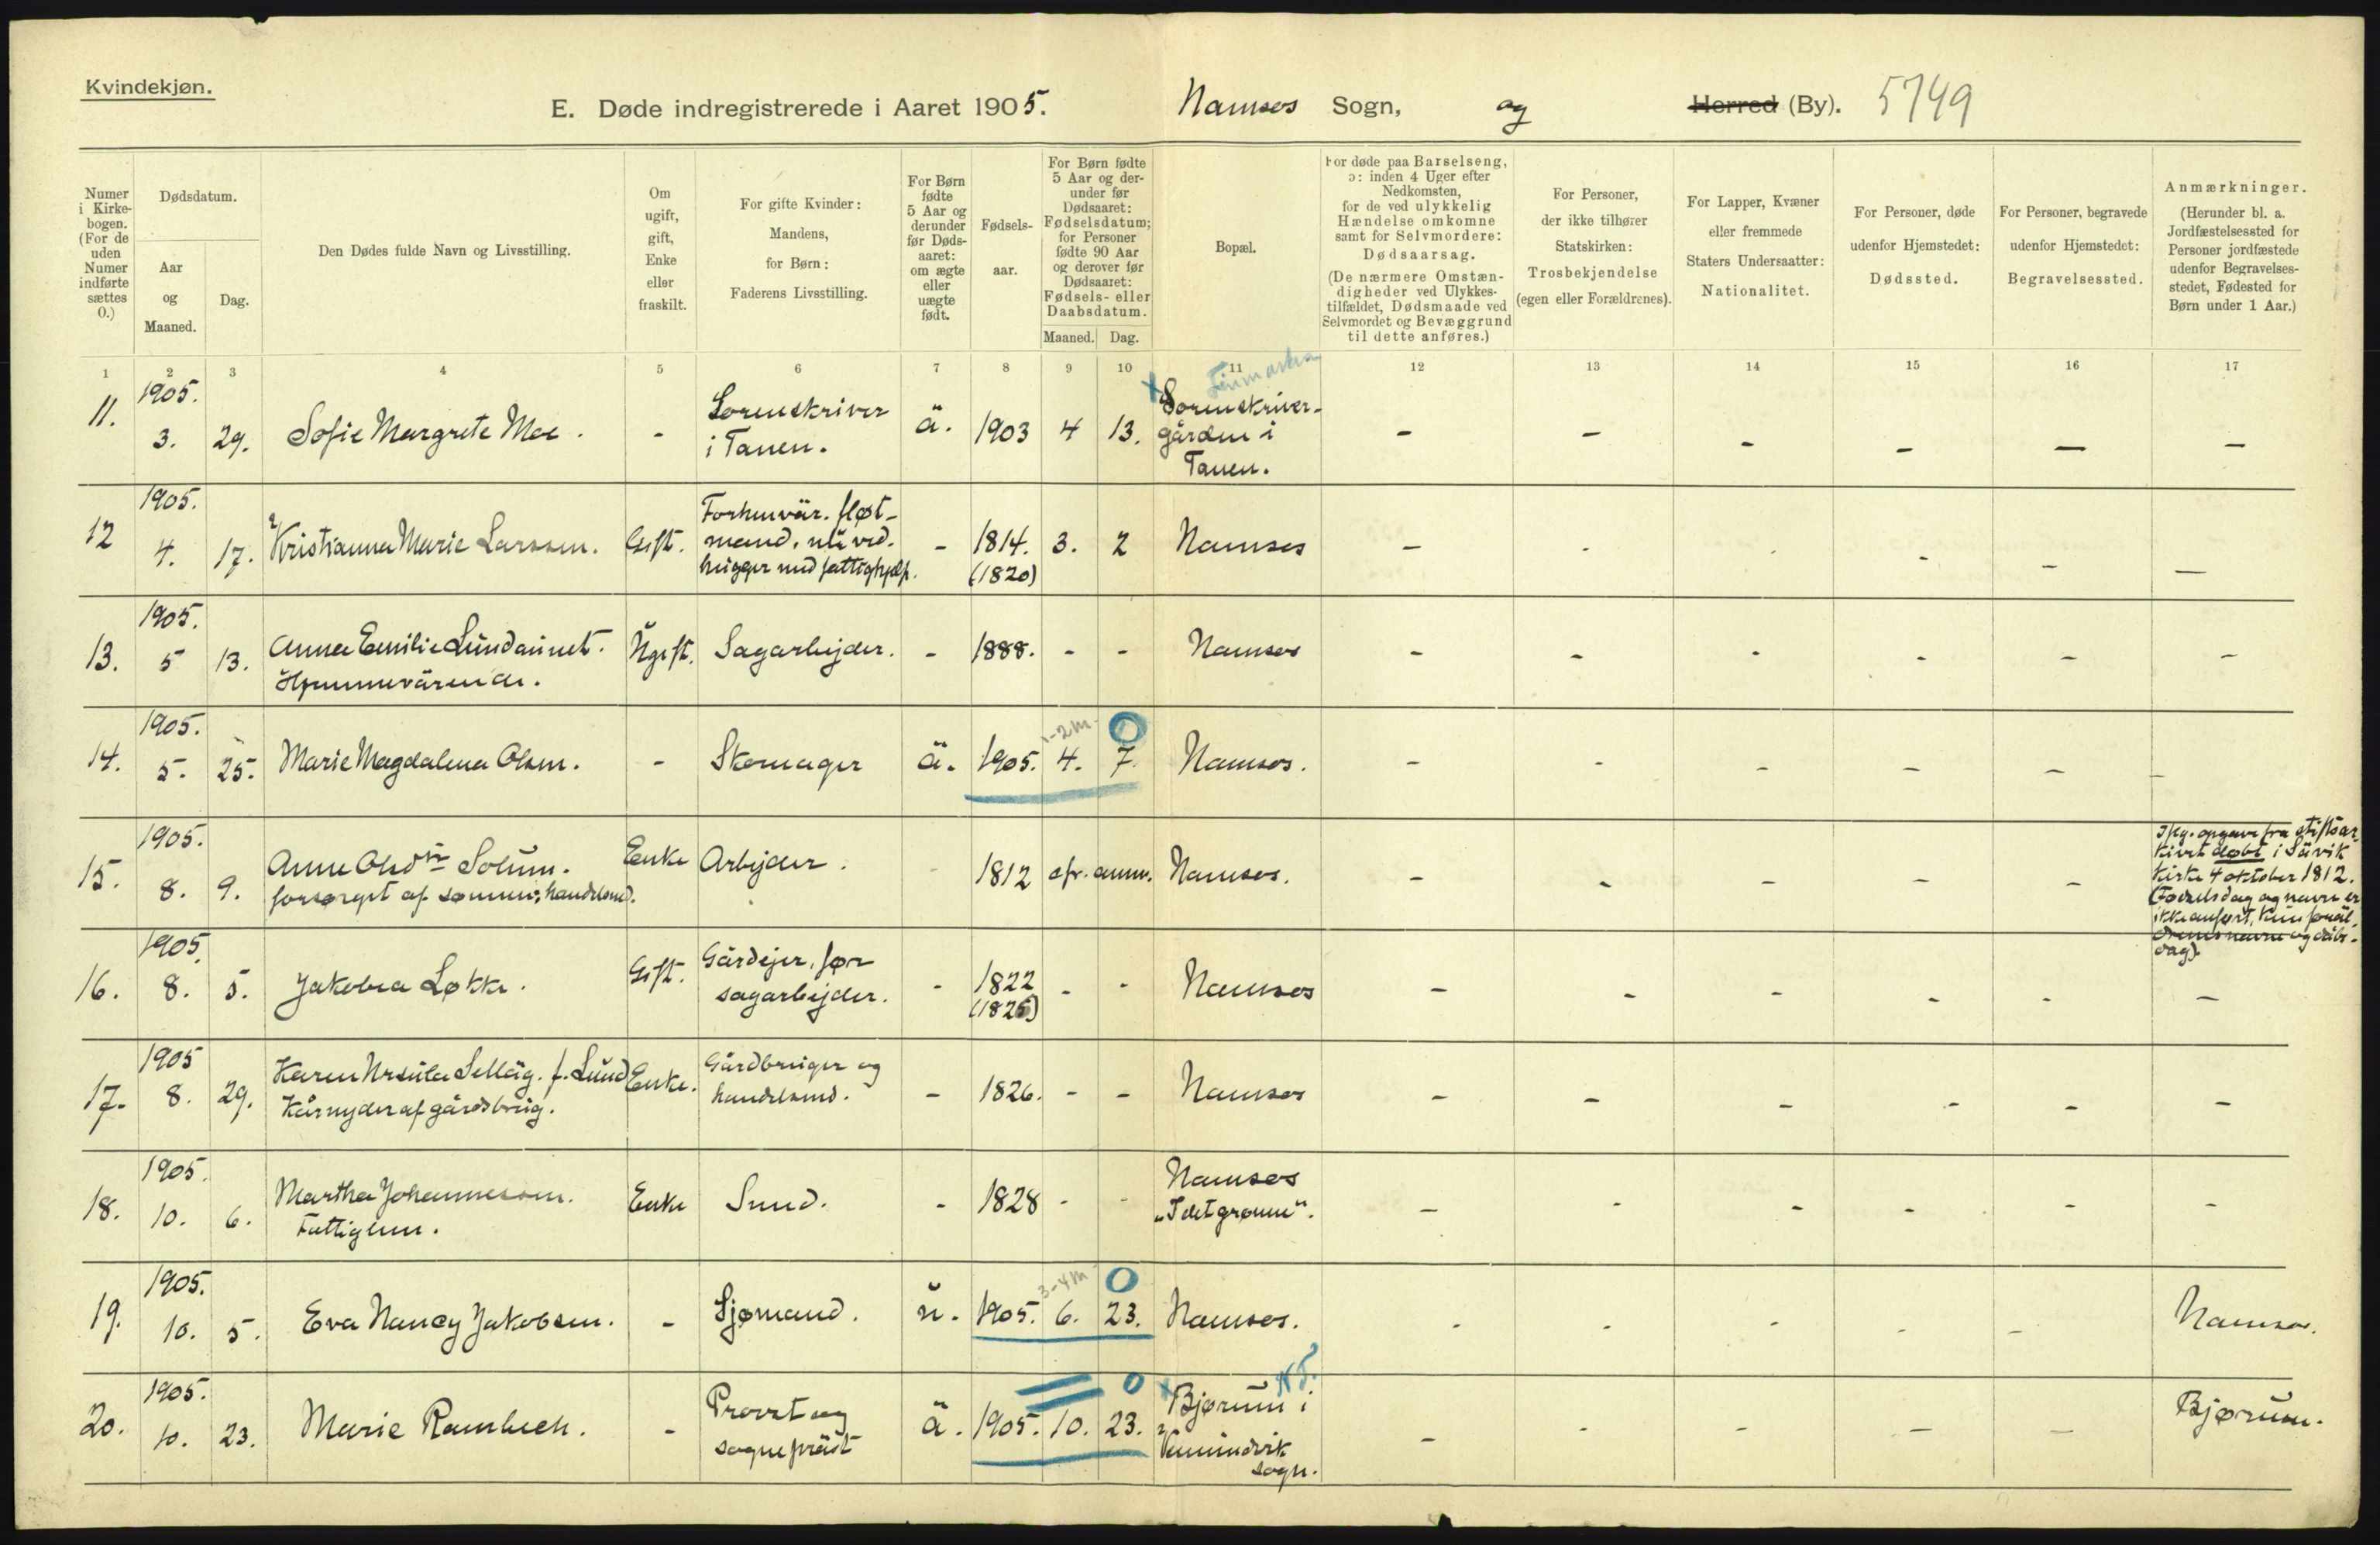 Kvindekjøn.
E. Døde indregistrerede i Aaret 1905. Namsos Sogn, og Herred (By). 5749
Numer i Kirke-bogen. (For de uden Numer indførte sættes 0.)
Dødsdatum.
Aar og Maaned.
Dag.
Den Dødes fulde Navn og Livsstilling.
Om ugift, gift, Enke eller fraskilt.
For gifte Kvinder: Mandens, for Børn: Faderens Livsstilling.
For Børn fødte 5 Aar og derunder før Døds-aaret: om ægte eller uægte født.
Fødsels-aar.
For Børn fødte 5 Aar og der-under før Dødsaaret: Fødselsdatum; for Personer fødte 90 Aar og derover før Dødsaaret: Fødsels- eller Daabsdatum.
Maaned. Dag.
Bopæl.
For døde paa Barselseng, ɔ: inden 4 Uger efter Nedkomsten, for de ved ulykkelig Hændelse omkomne samt for Selvmordere: Dødsaarsag.
(De nærmere Omstæn-digheder ved Ulykkes-tilfældet, Dødsmaade ved Selvmordet og Bevæggrund til dette anføres.)
For Personer, der ikke tilhører Statskirken: Trosbekjendelse (egen eller Forældrenes).
For Lapper, Kvæner eller fremmede Staters Undersaatter: Nationalitet.
For Personer, døde udenfor Hjemstedet: Dødssted.
For Personer, begravede udenfor Hjemstedet: Begravelsessted.
Anmærkninger. (Herunder bl. a. Jordfæstelsessted for Personer jordfæstede udenfor Begravelses-stedet, Fødested for Børn under 1 Aar.)
1 2 3 4 5 6 7 8 9 10 11 12 13 14 15 16 17
Finmarken
11. 1905. 3. 29. Sofie Margrete Moe. - Sorenskriver i Tanen. ä. 1903 4 13. Sorenskriver-gården i Tanen. - - - - - -
12 1905. 4. 17. Kristianna Marie Larssen. Gift. Forhenvär. fløt-mand, nu ved-hugger med fattighjelp. - 1814. (1820) 3. 2 Namsos - - - - - -
13. 1905. 5 13. Anna Emilie Lundaunet. Hjemmevärende. Ugift. Sagarbejder. - 1888. - - Namsos - - - - - -
14. 1905. 5. 25. Marie Magdalena Olsen. - Skomager ä. 1905. 4. 7. Namsos. - - - - - -
1-2 m
15. 1905. 8. 9. Anne Olsdtr Solum. forsørget af sønnen, handelsmd. Enke Arbejder. 1812 cfr. anm. Namsos. - - - - -
Ifig. opgave fra stiftsar-
kivet døbt i Sävik
kirke 4 oktober 1812.
(Fødselsdag og navn er
ikke anført, kun foräl-
drenes navne og dåbs-
dag).
16. 1905. 8. 5. Jakobea Løkke. Gift. Gårdejer, før sagarbejder. - 1822 (1825) - - Namsos - - - - - -
17. 1905 8. 29. Karen Ursula Selläg. f. Lund Kårnyder af gårdsbrug. Enke. Gårdbruger og handelsmd. - 1826. - - Namsos - - - - - -
18. 1905. 10. 6. Martha Johannessen. Fattiglem. Enke Smed. - 1828 - - Namsos "Idetgrønne". - - - - - -
19. 1905. 10. 5. Eva Nancy Jakobsen. - Sjømand. u. 1905. 6. 23. Namsos. - - - - - Namsos.
3-4 m
N.T.
20. 1905. 10. 23. Marie Rambech. - Provst og sogneprest ä. 1905. 10. 23. Bjørum i Vemundvik sogn. - - - - - Bjørum.